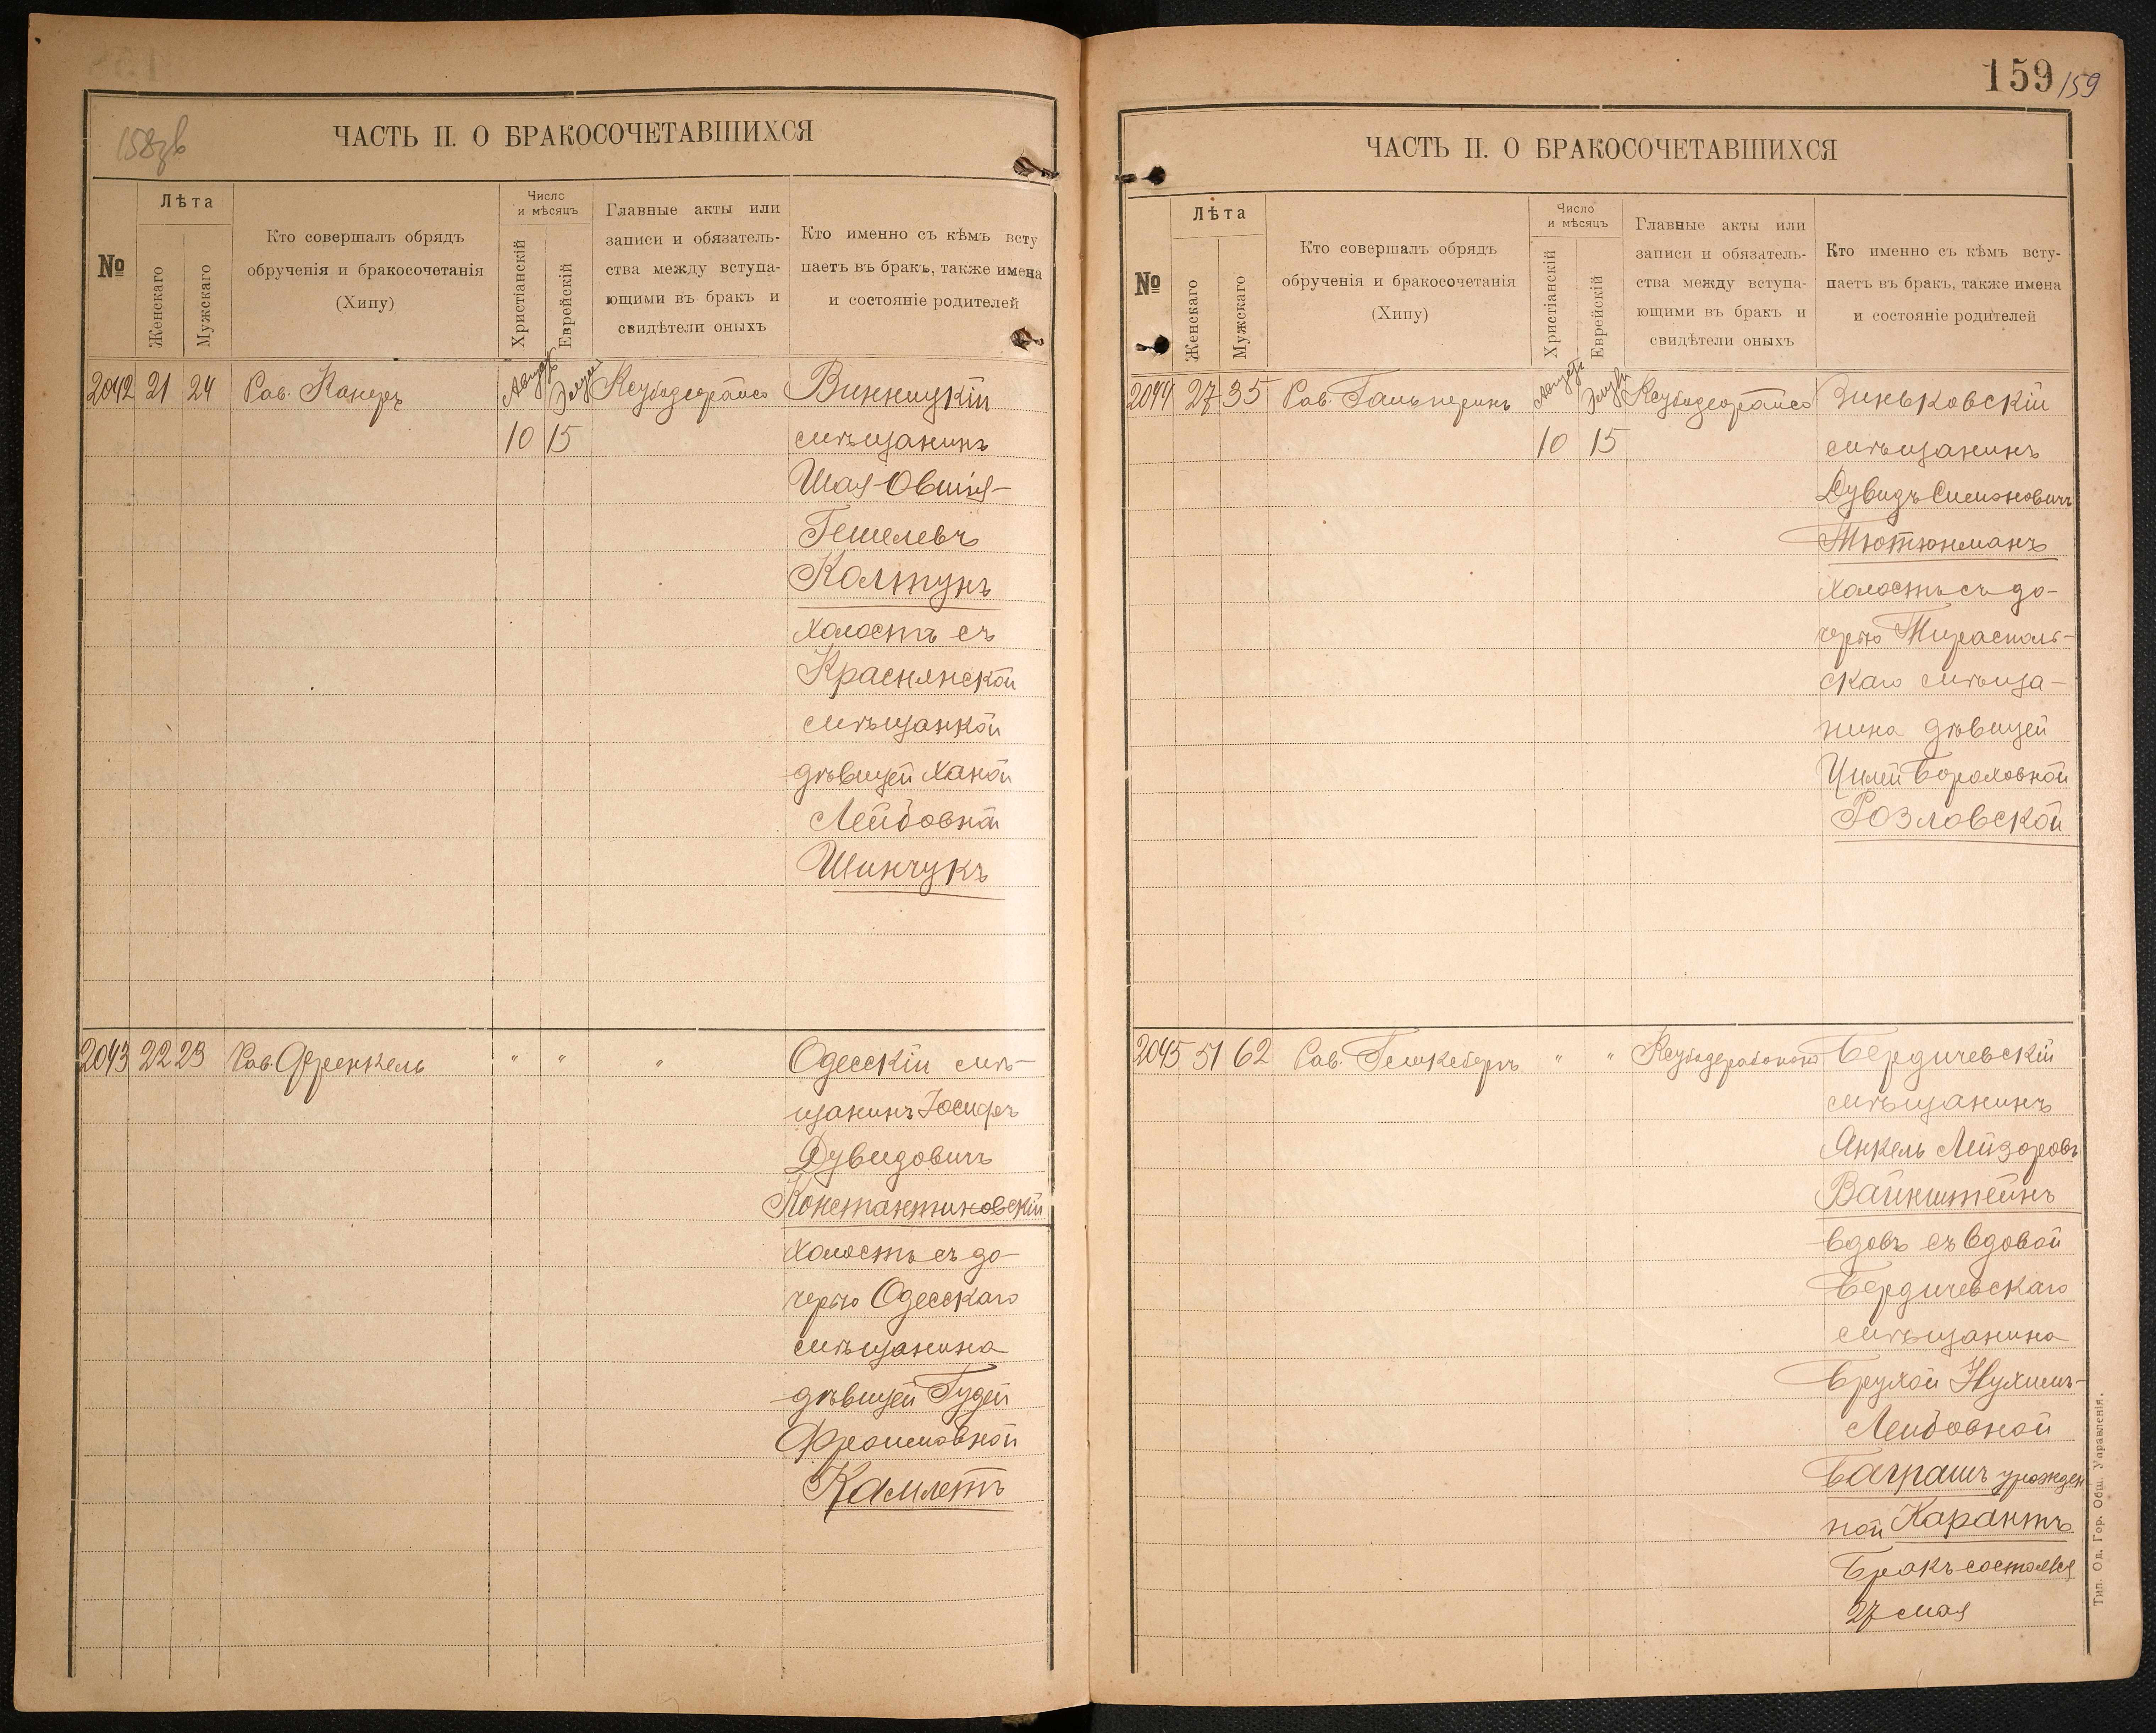 158зв
ЧАСТЬ II. О БРАКОСОЧЕТАВШИХСЯ
№
Лѣта
Женскаго
Мужскаго
Кто совершалъ обрядъ
обрученія и бракосочетанія
(Хипу)
Число
и мѣсяцъ
Христіанскій
Еврейскій
Главные акты или
записи и обязатель-
ства между вступа-
ющими въ бракъ и
свидѣтели оныхъ
Кто именно съ кѣмъ всту
паетъ въ бракъ, также имена
и состояніе родителей
2042 21 24 Рав. Канеръ
10 15
Винницкій
мѣщанинъ
Шая-Овшія-
Гешелевъ
Колтунъ
холостъ съ
Краснянской
мѣщанкой
дѣвицей Ханой
Лейбовной
Шинчукъ
2043 22 23 Рав. Френкель " " " Одесскій мѣ-
щанинъ Іосифъ
Дувидовичъ
Константиновскій
холостъ съ до-
черью Одесскаго
мѣщанина
дѣвицей Гудей
Фроимовной
Камлетъ
159 159
ЧАСТЬ II. О БРАКОСОЧЕТАВШИХСЯ
№
Лѣта
Женскаго
Мужскаго
Кто совершалъ обрядъ
обрученія и бракосочетанія
(Хипу)
Число
и мѣсяцъ
Христіанскій
Еврейскій
Главные акты или
записи и обязатель-
ства между вступа-
ющими въ бракъ и
свидѣтели оныхъ
Кто именно съ кѣмъ всту-
паетъ въ бракъ, также имена
и состояніе родителей
2044 27 35 Рав. Гальперинъ
10 15
Зиньковскій
мѣщанинъ
Дувидъ Симоновичъ
Тютюнманъ
холостъ съ до-
черью Тираспаль-
скаго мѣща-
нина дѣвицей
Цилей Бороховной
Розловской
2045 51 62 Рав. " " Бердичевскій
мѣщанинъ
Янкель Лейзоровъ
Вайнштейнъ
вдовъ съ вдовой
Бердичевскаго
мѣщанина
Брухой Нухимъ-
Лейбовной
Баграшъ урожден
ной Карантъ
Бракъ состоялся
27 мая
Тип. Од. Гор. Общ. Управленія.